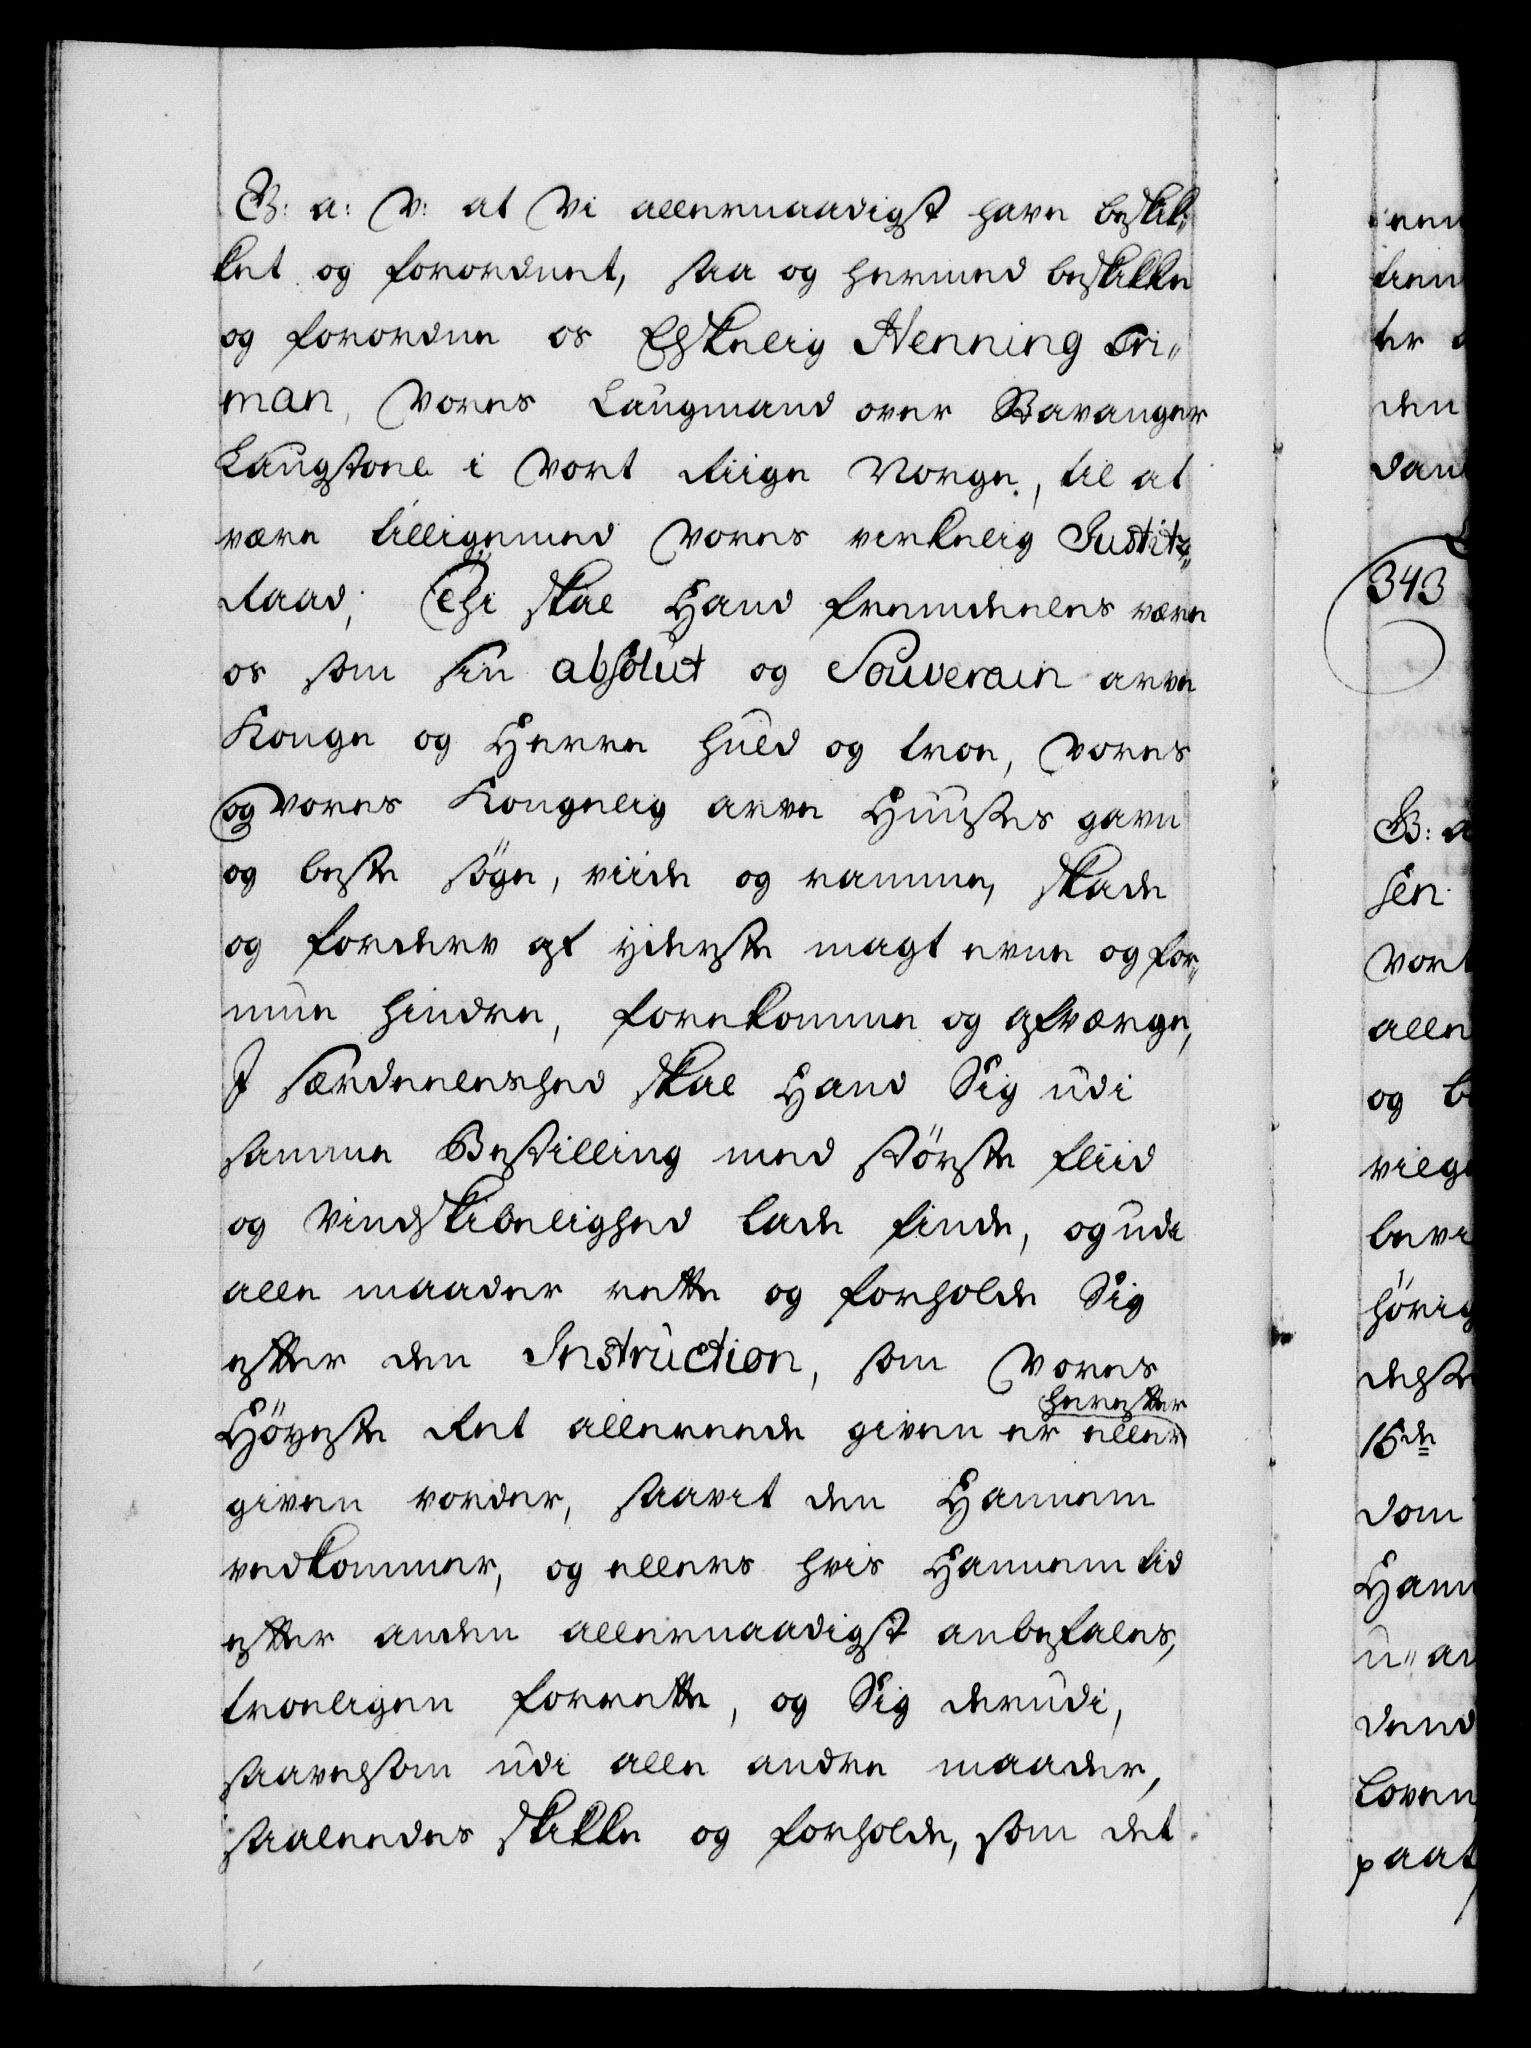 G: a: V: at Vi allernaadigst have beskik-
ket og forordnet, saa og hermed beskikke
og forordne os Elskelig Henning Ori-
man, Vores Laugmand over Stavanger
Laugstoel i Vort Riige Norge, til at
være tilligemed Vores virkelig Justitz-
Raad; Thi skal Hand fremdeeles være
os som sin absolut og Souverain arve
Konge og Herre huld og troe, Vores
og Vores Kongelig arve Huuses gavn
og beste søge, viide og ramme, skade
og forderv af yderste magt evne og for-
mue hindre, forekomme og afværge,
I særdeeleshed skal Hand Sig udi
samme Bestilling med største fliid
og Vindskibelighed lade finde, og udi
alle maader rette og forholde Sig
efter den Instruction, som Vores
Høyeste Ret allereede given er eller herefter
given vorder, saavit den Hannem
vedkommer, og ellers hvis Hannem tid
efter anden allernaadigst anbefales,
troeligen forrette, og Sig derudi,
saavelsom udi alle andre maader,
saaleedes skikke og forholde, som det
343
G: a
sen
Vort
alle
og b
hørig
16de
dom
Ham
paat